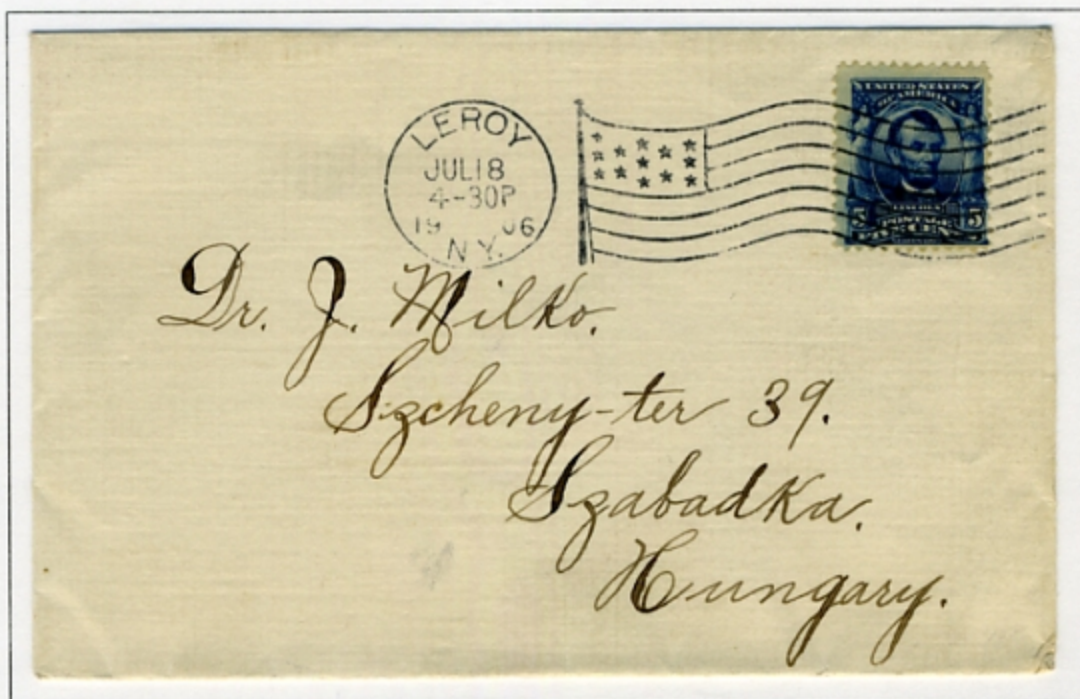 LEROY
JUL 18
4-30P
19 06
N.Y.
UNITED STATES
OF AMERICA
5 POSTAGE 5
Dr. J. Milko.
Szcheny-ter 39.
Szabadka.
Hungary.